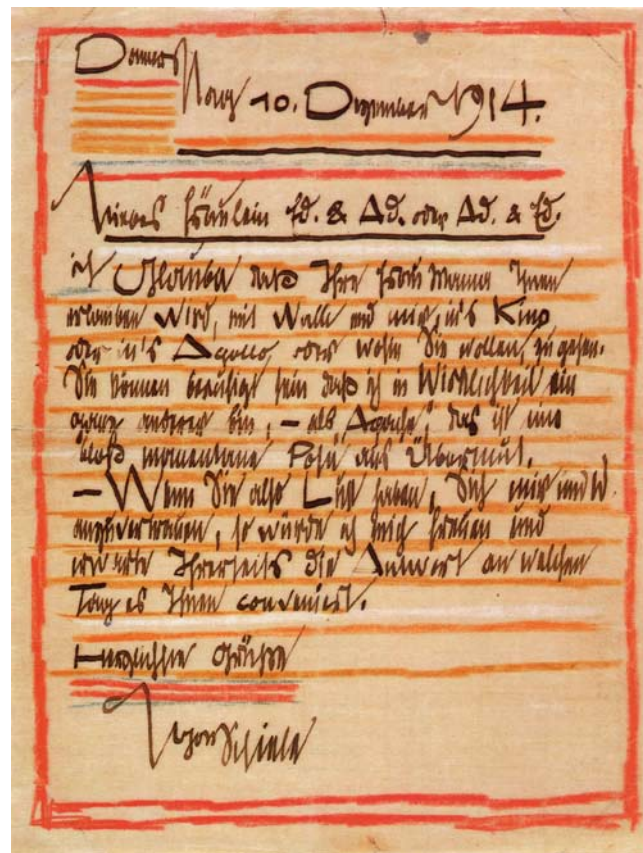 Donners
tag 10. Dezember 1914.
Liebes Fräulein Ed. & Ad. oder Ad. & Ed.
ich Glaube daß Ihre Frau Mama Ihnen
erlauben Wird, mit Walli und mir, in's Kino
oder in's Apollo, oder wohin Sie wollen, zu gehen.
Sie können beruhigt sein daß ich in Wirklichkeit ein
ganz anderer bin, – als Apache," das ist eine
bloß momentane Pose aus Übermut.
– Wenn Sie also Lust haben, Sich mir und W.
anzuvertrauen, so würde ich mich freuen und
erwarte Ihrerseits die Antwort an welchen
Tag es Ihnen conveniert.
Herzlichste Grüße
Egon Schiele